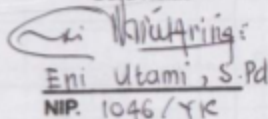 Eni Utami, S.Pd
NIP. 1046/YK